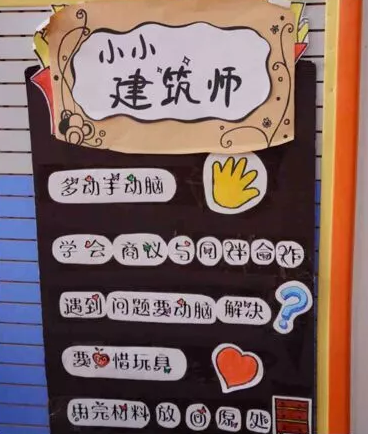 小小
建筑师
多动手动脑
学会商议与同伴合作
遇到问题要动脑解决
要爱惜玩具
用完材料放回原处